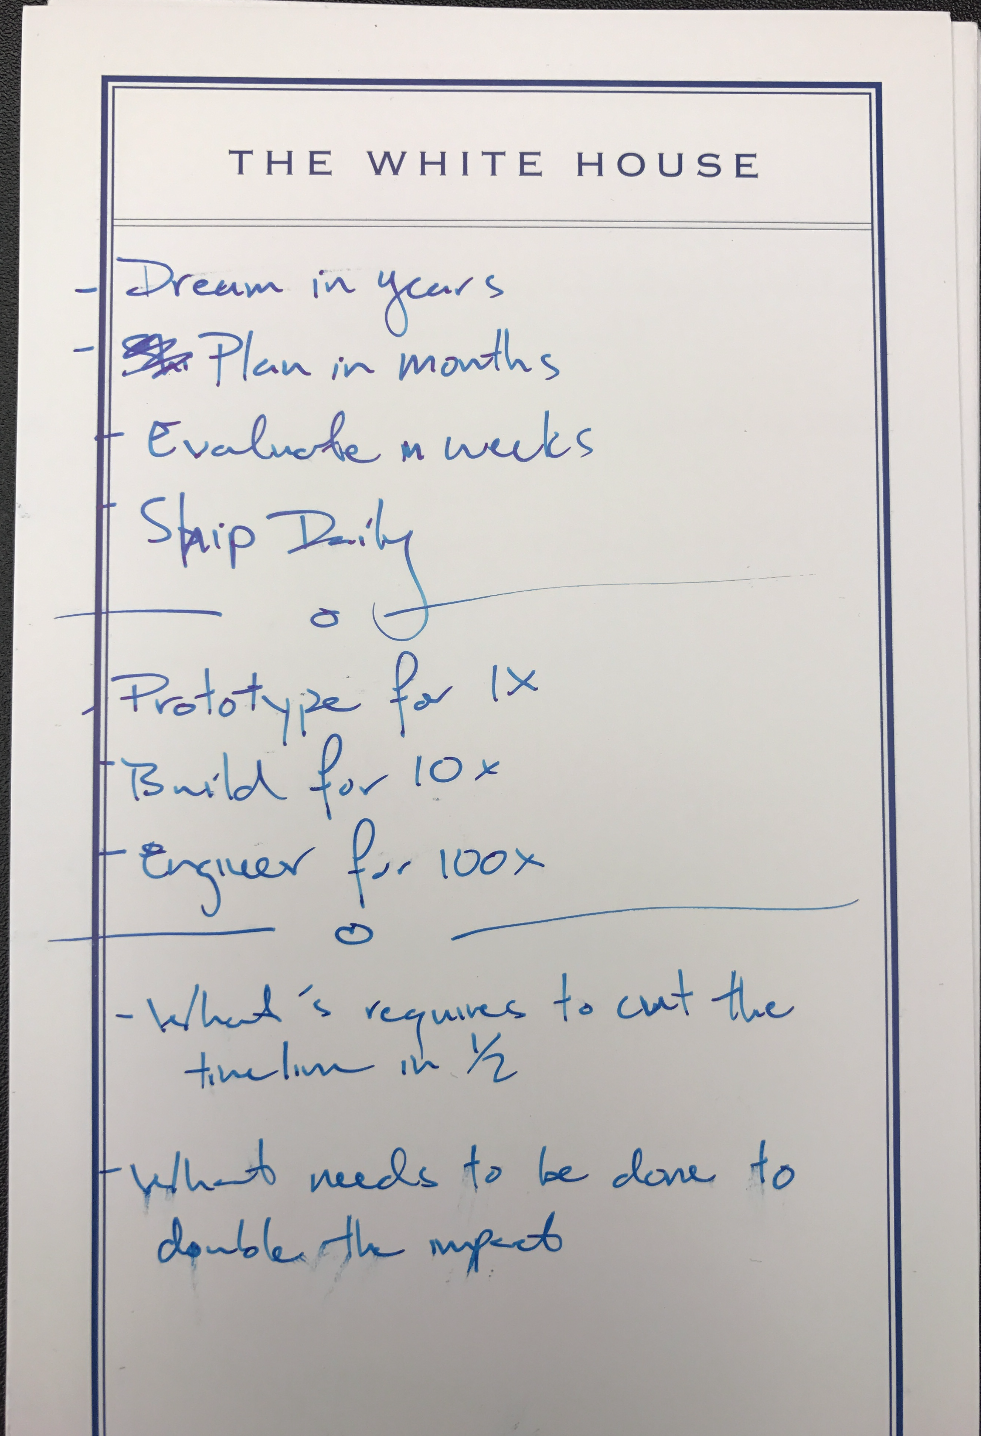 THE WHITE HOUSE
- Dream in years
- Plan in months
- Evaluate in weeks
- Ship Daily
- Prototype for 1x
- Build for 10x
- Engineer for 100x
- What's requires to cut the
timeline in 1/2
- What needs to be done to
double the impact